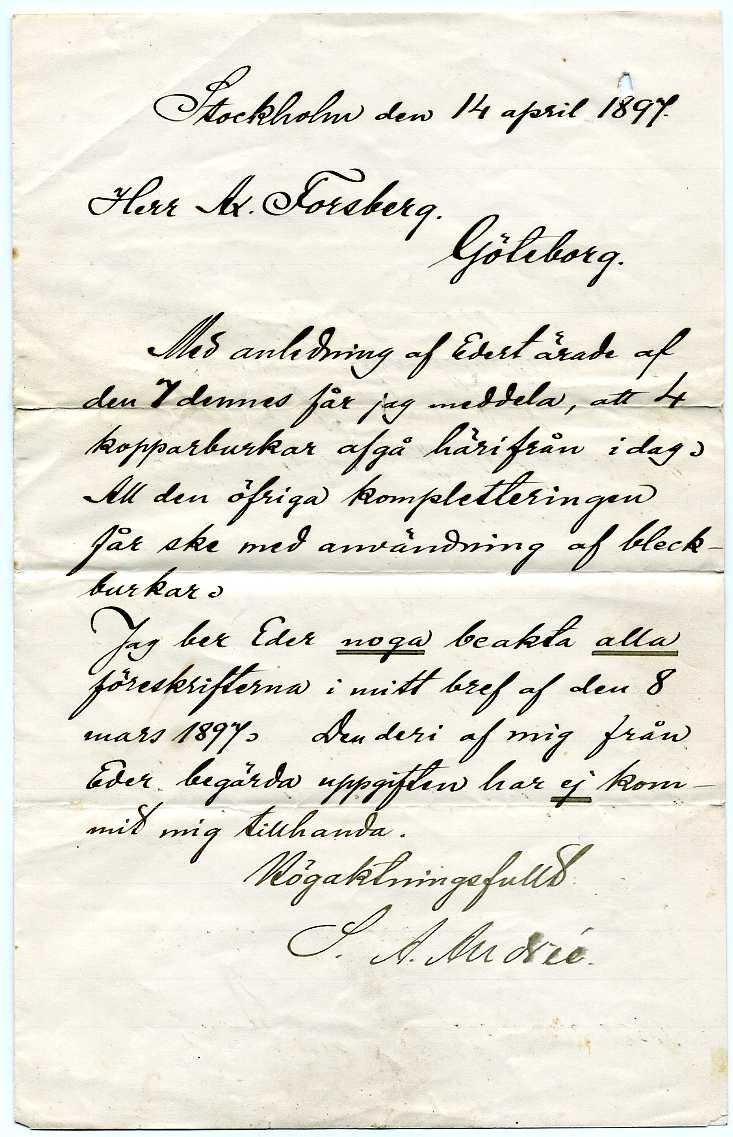 Stockholm den 14 april 1897.
Herr Ax. Forsberg.
Göteborg.
Med anledning af Edert ärade af
den 7 dennes får jag meddela, att 4
kopparburkar afgå härifrån i dag.
All den öfriga kompletteringen
får ske med användning af bleck-
burkar.
Jag ber Eder noga beakta alla
föreskrifterna i mitt bref af den 8
mars 1897. Den deri af mig från
Eder begärda uppgiften har ej kom-
mit mig tillhanda.
Högaktningsfullt
S. A. Andrée.